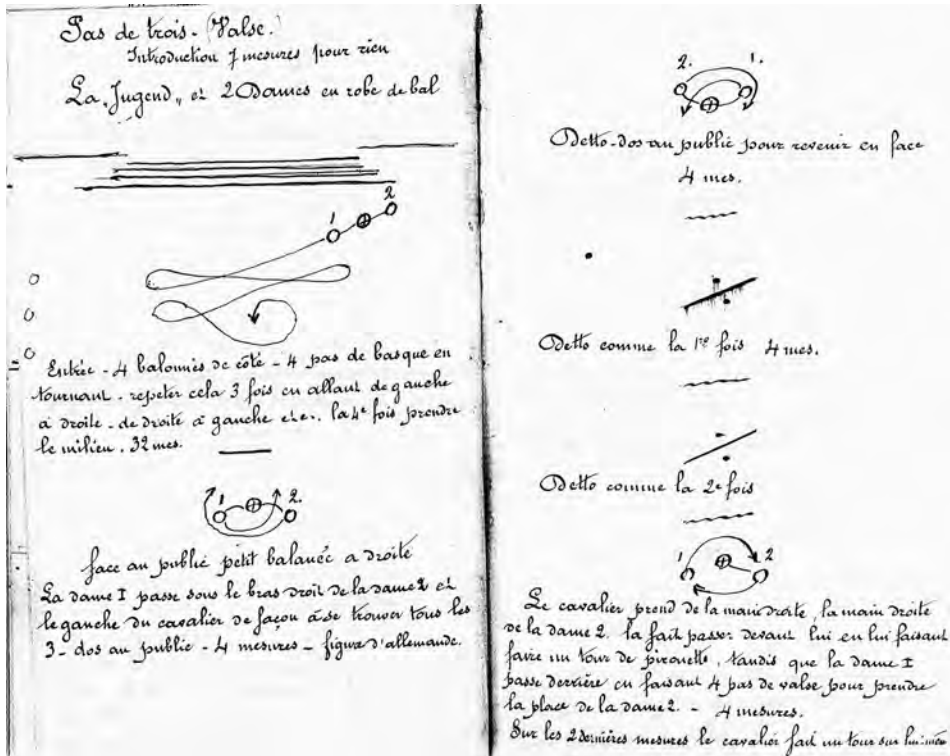 Pas de trois - (Valse.)
Introduction 7 mesures pour rien
La "Jugend" et 2 Dames en robe de bal
1 2
Entrée - 4 balonnés de côté - 4 pas de basque en
tournant. repeter cela 3 fois en allant de gauche
à droite - de droite à gauche etc. la 4e fois prendre
le milieu. 32 mes.
1 2.
face au public petit balancé a droite
La dame I passe sous le bras droit de la dame 2 et
le gauche du cavalier de façon à se trouver tous les
3 - dos au public - 4 mesures - figure d'allemande.
2. 1.
Detto - dos au public pour revenir en face
4 mes.
Detto comme la 1re fois 4 mes.
Detto comme la 2e fois
1 2
Le cavalier prend de la main droite, la main droite
de la dame 2. la fait passer devant lui en lui faisant
faire un tour de pirouette, tandis que la dame I
passe derrière en faisant 4 pas de valse pour prendre
la place de la dame 2. - 4 mesures.
Sur les 2 dernières mesures le cavalier fait un tour sur